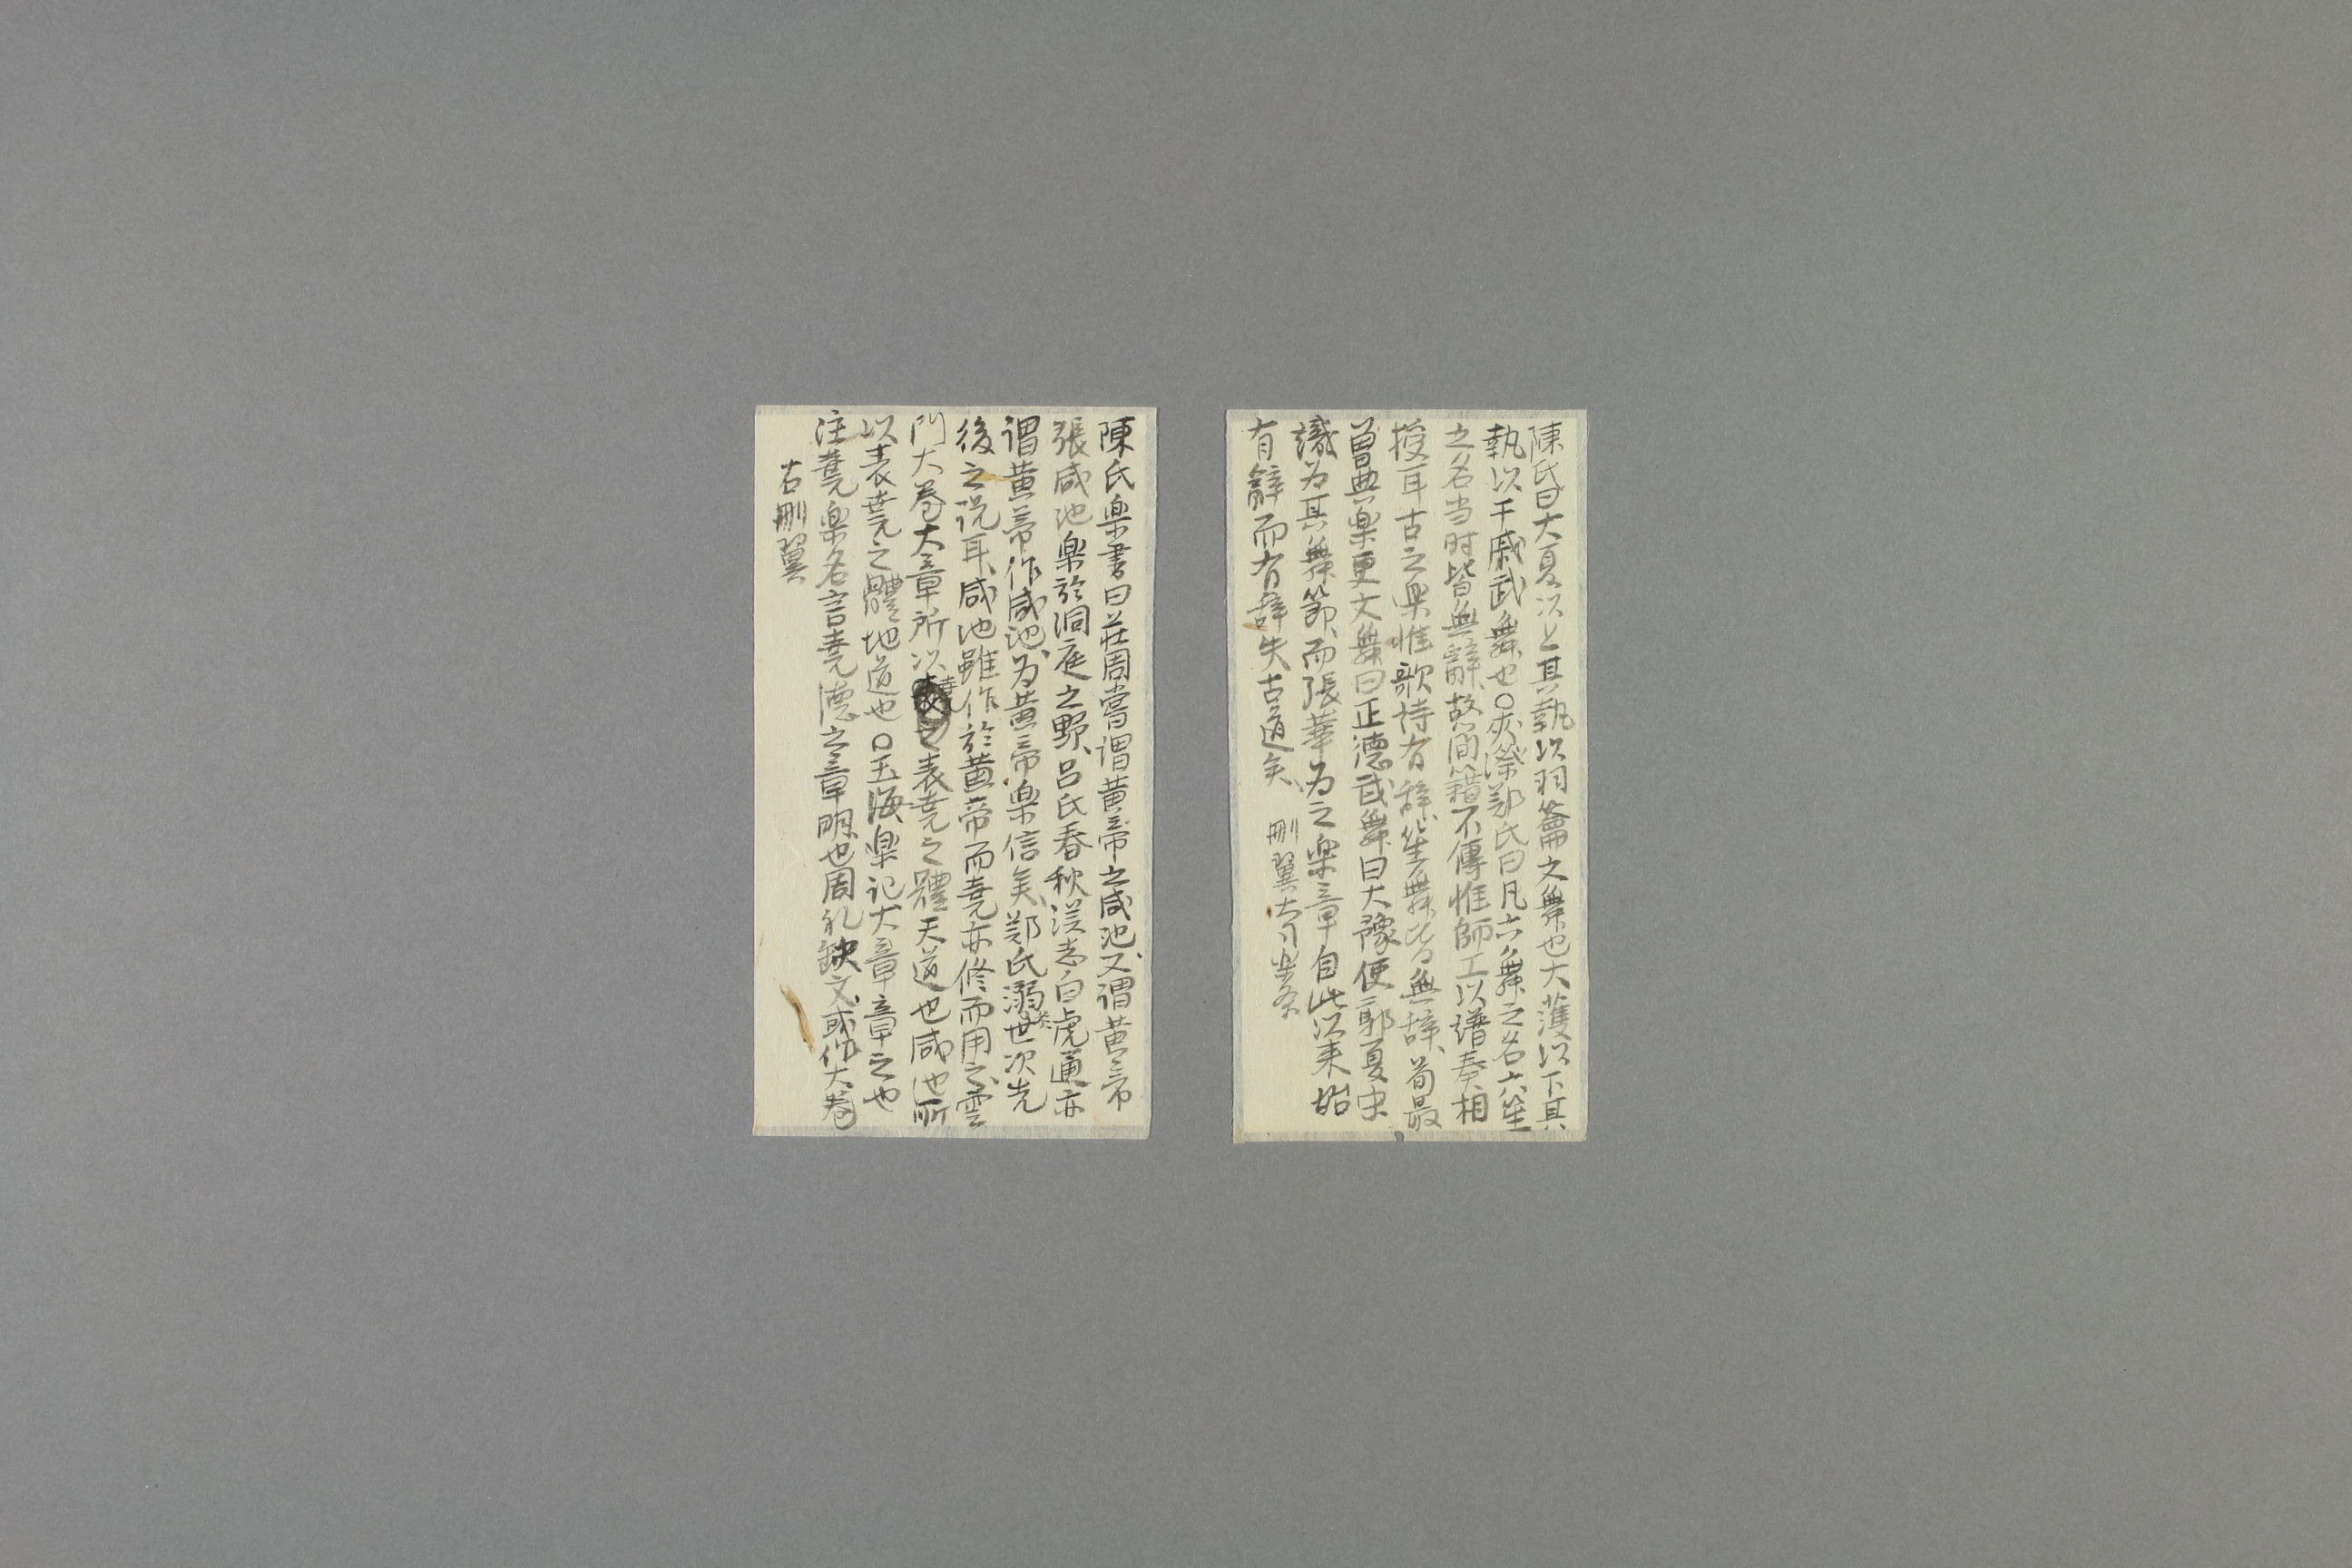 陳氏曰大夏以上其執以羽籥文舞也大蒦以下其
執以干戚武舞也○夾漈鄭氏曰凡六舞之名六笙
之名当时皆無辭故簡籍不傳惟師工以譜奉相
授耳古之楽惟歌詩有辞笙舞皆無辞荀最
曽典楽更文舞曰正德武舞曰大豫使郭夏宋
識为其舞節而張華为之楽章自此以来始
有辭而有辞失古道矣 刪翼
陳氏楽書曰莊周嘗谓黄帝之咸池又谓黄帝
張咸池楽於洞庭之野吕氏春秋漢志白虎通亦
谓黄帝作咸池为黄帝楽信矣鄭氏溺世次先
後之说耳咸池雖作於黄帝而尭亦修而用之雲
門大卷大章所以表尭之體天道也咸池所
以表尭之體地道也○玉海楽记大章章之也
注尭楽名言尭德之章明也周礼缺文或作大卷
右刪翼